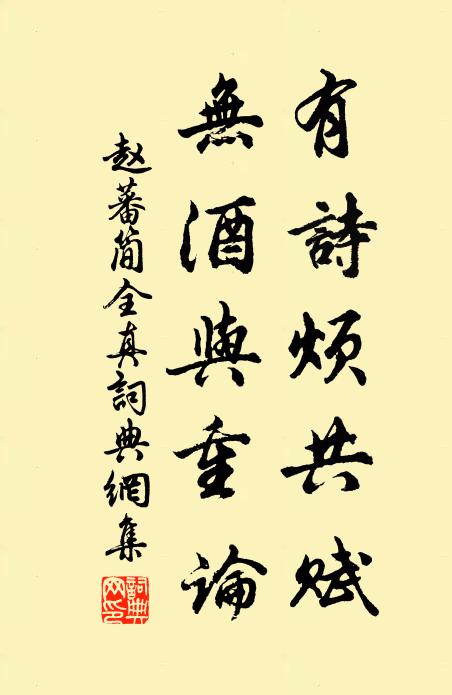 有詩煩共賦
無酒與重論
赵蕃簡全真詞典網集
詞典網印